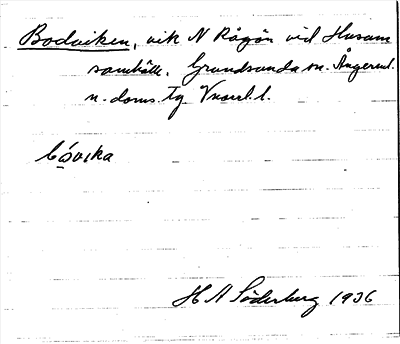 Bodviken, vik N Rågön vid Husum
samhälle. Grundsunda sn. Ångerml.
n. doms. tg Vnorrl. l.
H A Söderberg 1936